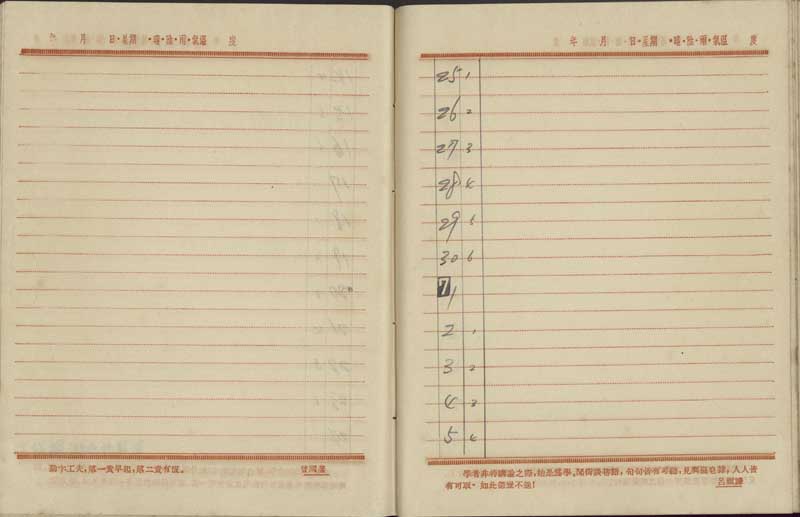 年 月 日·星期 ·晴·陰·雨·氣溫 度
勤字工夫，第一貴早起，第二貴有恆。 曾國藩
年 月 日·星期 ·晴·陰·雨·氣溫 度
25 1
26 2
27 3
28 4
29 5
30 6
7 1
2 1
3 2
4 3
5 4
學者非待講論之際，始是爲學，聞街談巷語，句句皆有可聽，見輿臺皂隸，人人皆
有可取，如此德豈不進！ 呂祖謙